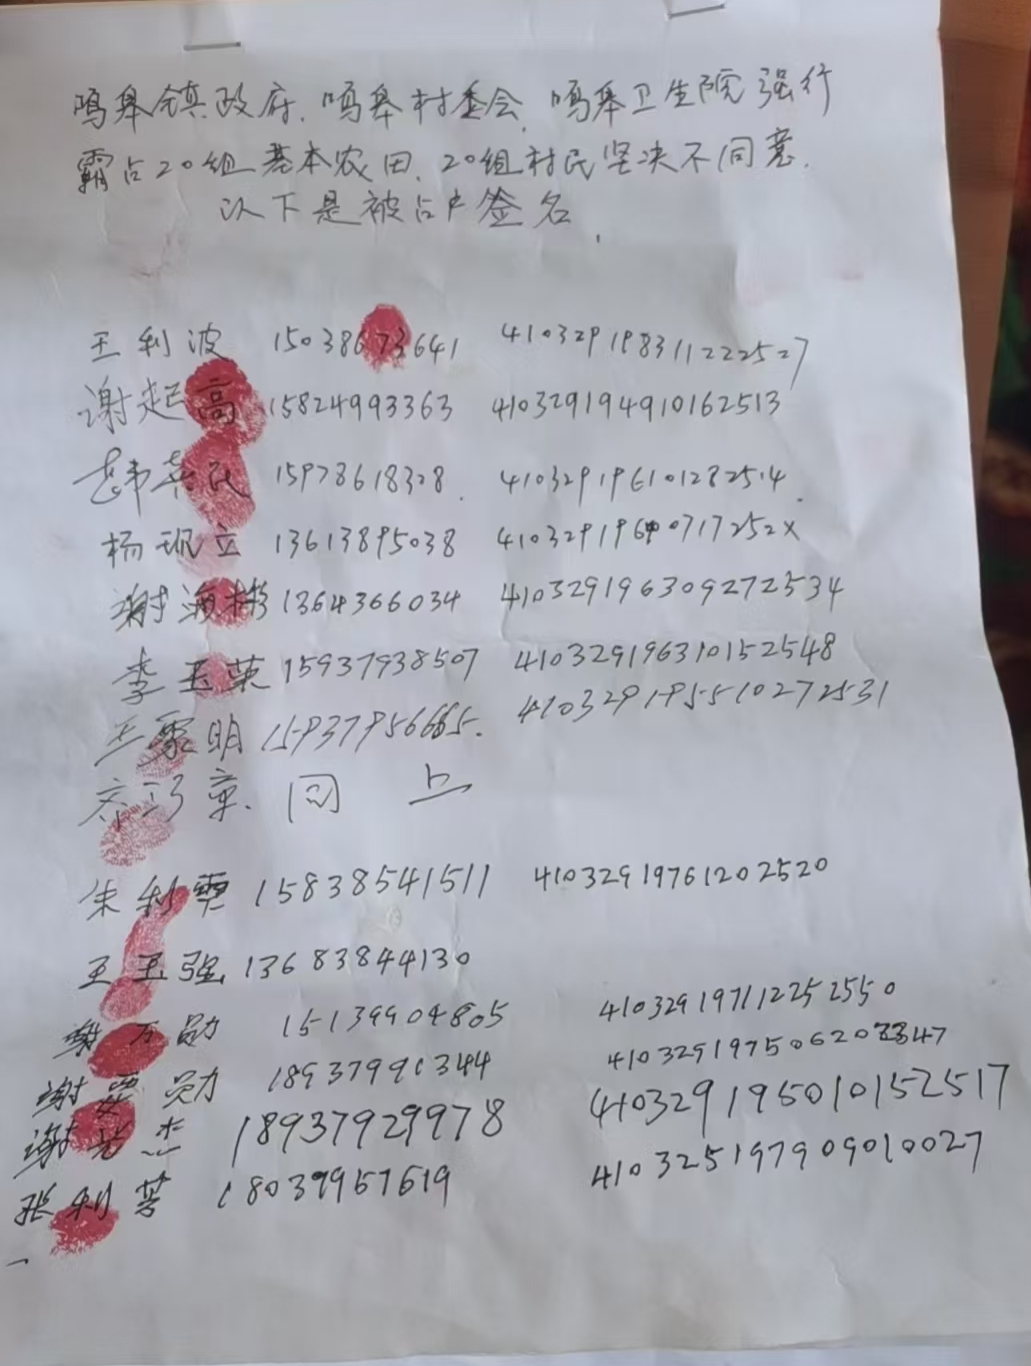 鸣皋镇政府、鸣皋村委会、鸣皋卫生院强行
霸占20组基本农田、20组村民坚决不同意.
以下是被占户签名,
王利波 15038673641 410329198311222527
谢起高 15824993363 410329194910162513
民 15978618328. 410329196101282514.
杨现立 13613895038 0717252X
谢海 1364366034 410329196309272534
李玉英 15937938507 410329196310152548
王 明 410329195510272531
齐巧 同 上
朱利 15838541511 410329197612202520
王玉强 13683844130
谢万勋 15139904805 410329197112252550
谢 勋
谢 杰 18937929978 410329195010152517
张利 18039957619 410325197909010027